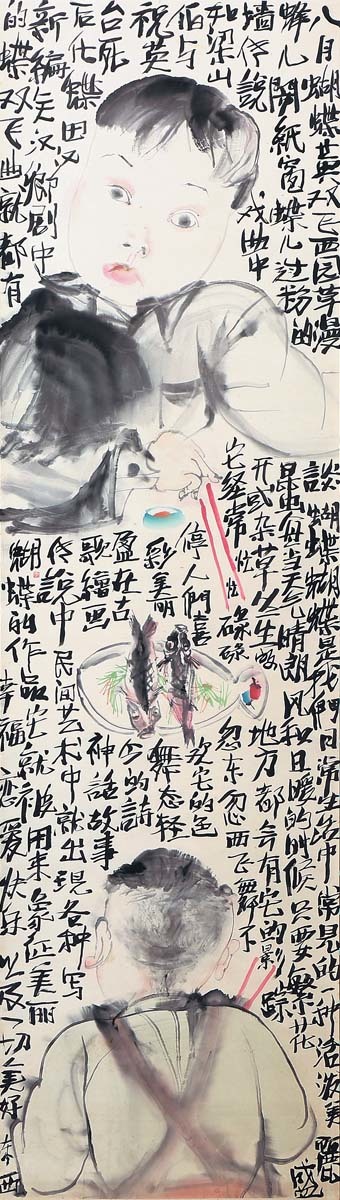 八月蝴蝶黄双飞西园草漫
蜂儿闹紙窗蝶儿过粉的
墙传說戏曲中
如梁山
伯与
祝英
台死
后化蝶田汉
新編
剧中
的蝶双飞曲就都有
談蝴蝶蝴蝶是我們日常生活中常見的一种活泼美麗
昆虫每当天气晴朗风和日暖的时候只要繁花盛
开或杂草丛生的地方都会有它的影踪
它经常忙忙碌碌忽东忽西飞舞不
停人們喜欢它的色
彩美丽舞态轻
盈在古今的詩
歌繪画神話故事
传說中民间艺术中就出現各种写
蝴蝶的作品它就被用来象征美丽
幸福恋爱快乐以及一切美好东西